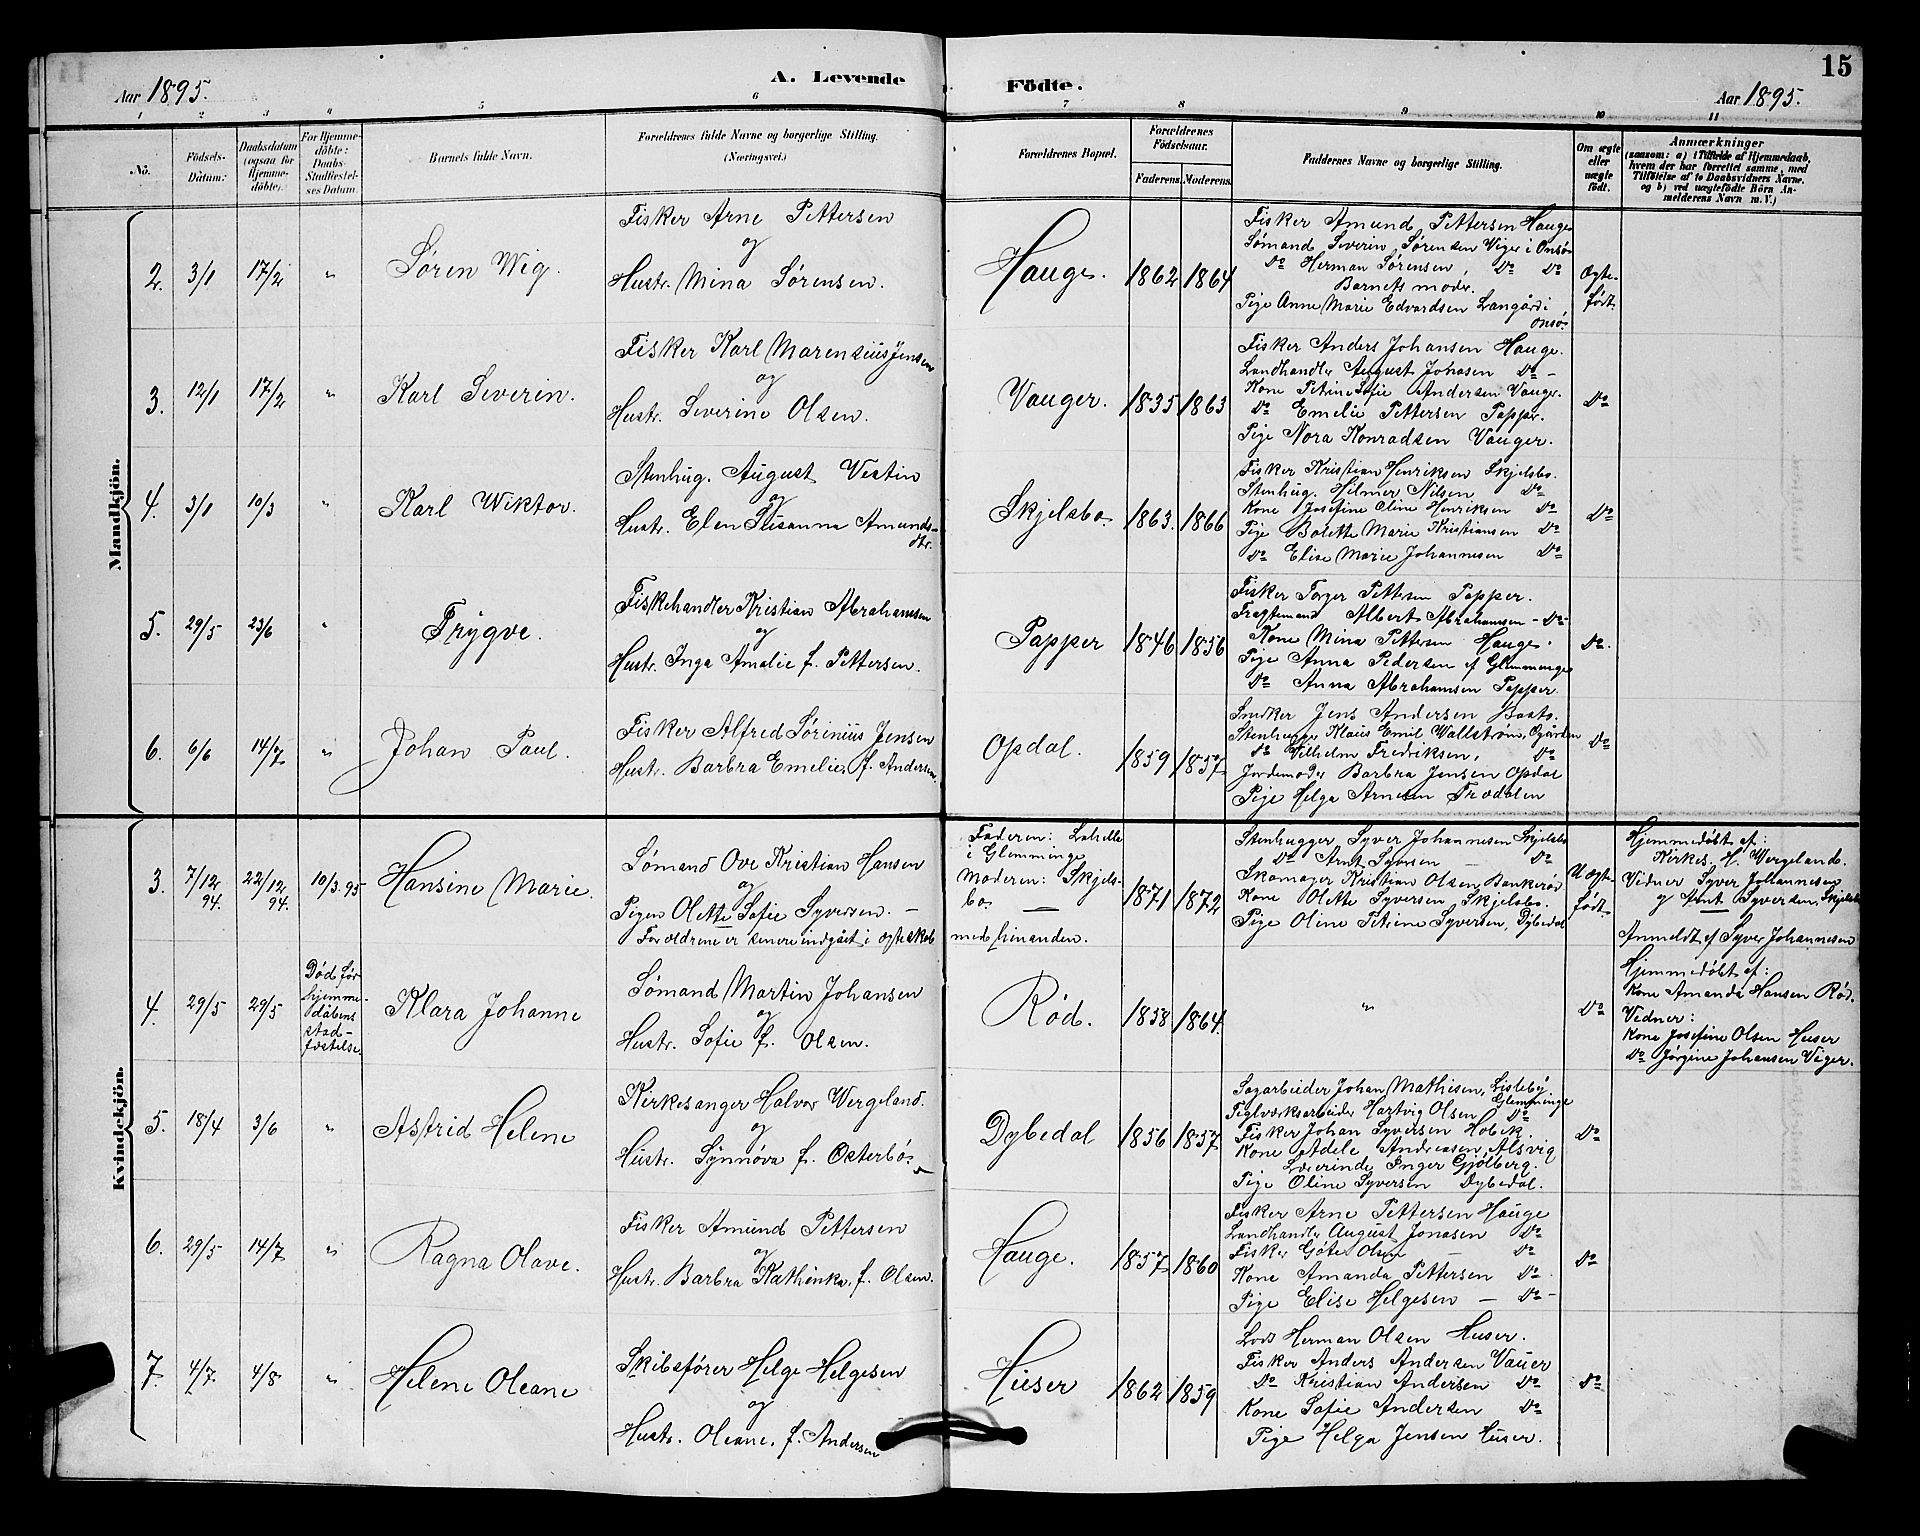 15
Aar 1895.
A. Levende
Födte.
Aar 1895.
1 2 3 4 5 6 7 8 9 10 11
No.
Födsels-Datum.
Daabsdatum (ogsaa for Hjemmedöbte).
For Hjemmedöbte: Daabs-Stadfæstelses Datum.
Barnets fulde Navn.
Forældrenes fulde Navne og borgerlige Stilling. (Næringsvei.)
Forældrenes Bopæl.
Forældrenes Födselsaar.
Faderens. Moderens.
Faddernes Navne og borgerlige Stilling.
Om ægte eller uægte födt.
Anmærkninger
(saasom: a) i Tilfælde af Hjemmedaab, hvem der har forrettet samme, med Tilföielse af to Daabsvidners Navne, og b) ved uægtefödte Börn Anmelderens Navn m. V.)
Mandkjön.
2. 3/1 17/2 " Søren Wig.
Fisker Arne Pettersen
og
Hustr. Mina Sørensen.
Hauge. 1862 1864
Fisker Amund Pettersen Hauge
Sømand Severin Sørensen Viger i Onsø
Do Herman Sørensen, Do Do
Barnets moder.
Pige Anne Marie Edvardsen Langård i Onsø.
Ægte-født.
3. 12/1 17/2 " Karl Severin.
Fisker Karl Marensius Jensen
og
Hustr. Severine Olsen.
Vauger. 1835 1863
Fisker Anders Johansen Hauge.
Landhandler August Jonasen Do -
Kone Petrine Sofie Andersen Vauger.
Do Emelie Pettersen Papper.
Pige Nora Konradsen Vauger.
Do
4. 3/1 10/3 " Karl Wiktor.
Stenhug. August Vestin
og
Hustr. Elen Susanna Amunds-
dtr.
Skjelsbo 1863. 1866
Fisker Kristian Henriksen Skjelsbo.
Stenhug. Hilmer Nilsen Do
Kone Josefine Oline Henriksen Do
Pige Bolette Marie Kristiansen Do
Do Elise Marie Johannesen Do
Do
5. 29/5 23/6 " Trygve.
Fiskehandler Kristian Abrahamsen
og
Hustr. Inga Amalie f. Pettersen.
Papper 1846 1856
Fisker Torger Pettersen Papper.
Fragtemand Albert Abrahamsen - Do -
Kone Mina Pettersen Hauge.
Pige Anna Pedersen af Glemminge
Do Anna Abrahamsen Papper.
Do.
6. 6/6 14/7 " Johan Paul.
Fisker Alfred Sørinius Jensen
Hustr. Barbra Emelie, f. Andersen.
Opdal. 1859 1857
Snedker Jens Andersen Basto.
Stenhugger Klaus Emil Wallstrøm,
Do Vilhelm Fredriksen, Do
Jordemoder Barbra Jensen Opdal
Pige Helga Arnesen Trædalen
Do
Kvindekjön.
3. 7/12 94. 22/12 94. 10/3.95 Hansine Marie.
Sømand Ove Kristian Hansen
og
Pigen Olette Sofie Syversen. -
Forældrene er senere indgået i ægteskab
med hinanden.
Faderen: Lahelle
i Glemminge
Moderen: Skjels-
bo.
1871 1872
Stenhugger Syver Johannesen Skjelsbo
Do Arnt Syversen - Do
Skomager Kristian Olsen, Bankerød
Kone Olette Syversen Skjelsbo.
Pige Oline Petrine Syversen, Dybedal
Uægte født
Hjemmedøbt af:
Kirkes. H. Vergeland.
Vidner Syver Johannesen
og Arnt Syversen, Skjelsbo
Anmeldt af Syver Johannesen
4. 29/5 29/5
Død før
hjemme-
dåbens
stad-
fæstelse.
Klara Johanne
Sømand Martin Johansen
og
Hustr. Sofie f. Olsen.
Rød. 1858 1864 " Do
Hjemmedøbt af:
Kone Amanda Hansen Rød.
Vidner:
Kone Josefine Olsen Huser
Do Jørgine Johansen Viger.
5. 18/4 3/6 " Astrid Helene
Kirkesanger Halvor Vergeland.
og
Hustr. Synnøva f. Østerbø.
Dybedal 1856 1857
Sagarbeider Johan Mathisen, Lisleby Glemminge
Teglværksarbeider Hartvig Olsen Do
Fisker Johan Syversen Holvik.
Kone Adele Andreasen, Alsvig
Lærerinde Inger Gjølberg.
Pige Oline Syversen Dybedal.
Do
6. 29/5 14/7 " Ragna Olave.
Fisker Amund Pettersen
og
Hustr. Barbra Kathinka, f. Olsen.
Hauge. 1857 1860
Fisker Arne Pettersen Hauge
Landhandler August Jonasen Do
Fisker Gøte Olsen - Do
Kone Amanda Pettersen Do
Pige Elise Helgesen - Do -
Do
7. 4/7 4/8 " Helene Oleane
Skibsfører Helge Helgesen
og
Hustr. Oleane, f. Andersen
Huser 1862 1859
Lods Herman Olsen Huser.
Fisker Anders Andersen Vauer
Do Kristian Andersen Do
Kone Sofie Andersen Do
Pige Helga Jensen Huser.
Do